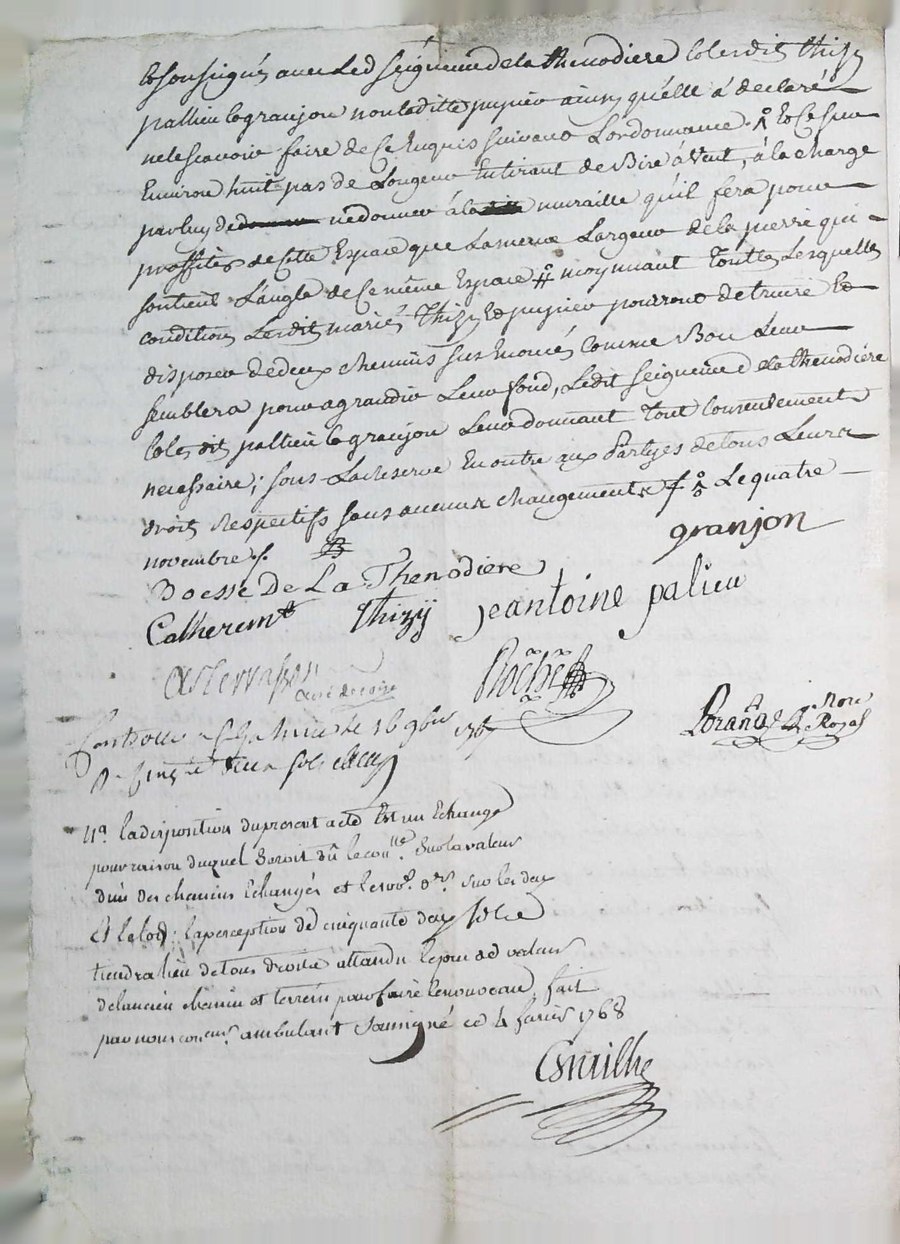 soussignés avec Led Seigneur de la thenodiere Lesdits thizy
pallieu & granjon non laditte pupier ainsy quelle á declaré
ne le scavoir faire de ce Enquis suivant Lordonnance. Et ce sur
Environ huit pas de Longeur En tirant de Bire á vent, á la charge
par luy de ne donner á la muraille qu'il fera pour
proffiter de Cette Espace que La meme Largeur de la pierre qui
soutient L'angle de Ce même Espace # moyennant toutes Lesquelles
conditions Lesdits mariés Thizy Et pupier pourront detruire Et
disposer de deux chemins sus Enoncés Comme Bon Leur
semblera pour agrandir Leur fond, Ledit Seigneur de la thenodiere
Lesdits pallieu & granjon Leur donnant Tout Consentement
necessaire; sous La reserve En outre aux Partyes de tous Leurs
droits Respectifs sans aucun changement Le quatre
novembre
granjon
Boesse De La Thenodiere
Catherin Thizÿ Jeantoine palieu
curé de
Rochet
Controllé a le 16 9bre 176
R cinq sols
Nota. la disposition du present acte Est un Echange
pour raison duquel Seroit dû le con.lle Sur la valeur
d'un des chemins Echangés et les sur les deux
Et le lod; la perception de cinquante deux sols
tiendra lieu de tous droits attandu le peu de valeur
de l'ancien chemin et terrein pour faire le nouveau, fait
par nous ambulant Soussigné ce 4 fevrier 1768